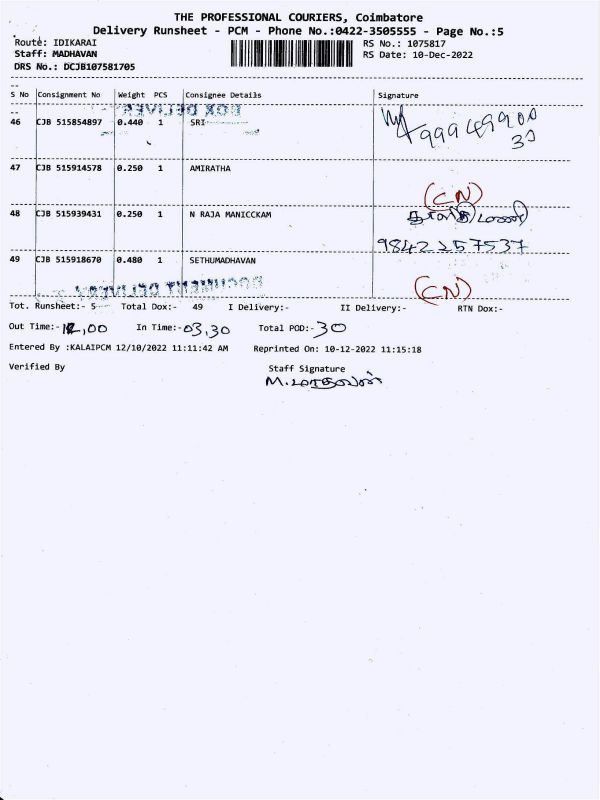 THE PROFESSIONAL COURIERS, Coimbatore
Delivery Runsheet - PCM - Phone No.:0422-3505555 - Page No.:5
Route: IDIKARAI
RS No.: 1075817
Staff: MADHAVAN
RS Date: 10-Dec-2022
DRS No.: DCJB107581705
S No Consignment No Weight PCS Consignee Details Signature
46 CJB 515854897 0.440 1 SRI
47 CJB 515914578 0.250 1 AMIRATHA
(CN)
48 CJB 515939431 0.250 1 N RAJA MANICCKAM
49 CJB 515918670 0.480 1 SETHUMADHAVAN
DOCUMENT DELIVERY
(CN)
Tot. Runsheet:- 5 Total Dox:- 49 I Delivery:- II Delivery:- RTN Dox:-
Out Time:- 12,00 In Time:- 03,30 Total POD:- 30
Entered By :KALAIPCM 12/10/2022 11:11:42 AM Reprinted On: 10-12-2022 11:15:18
Verified By Staff Signature
M.மாதவன்